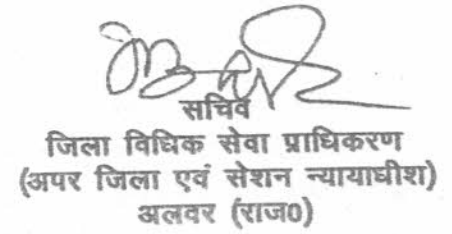 सचिव
जिला विधिक सेवा प्राधिकरण
(अपर जिला एवं सेशन न्यायाधीश)
अलवर (राज0)